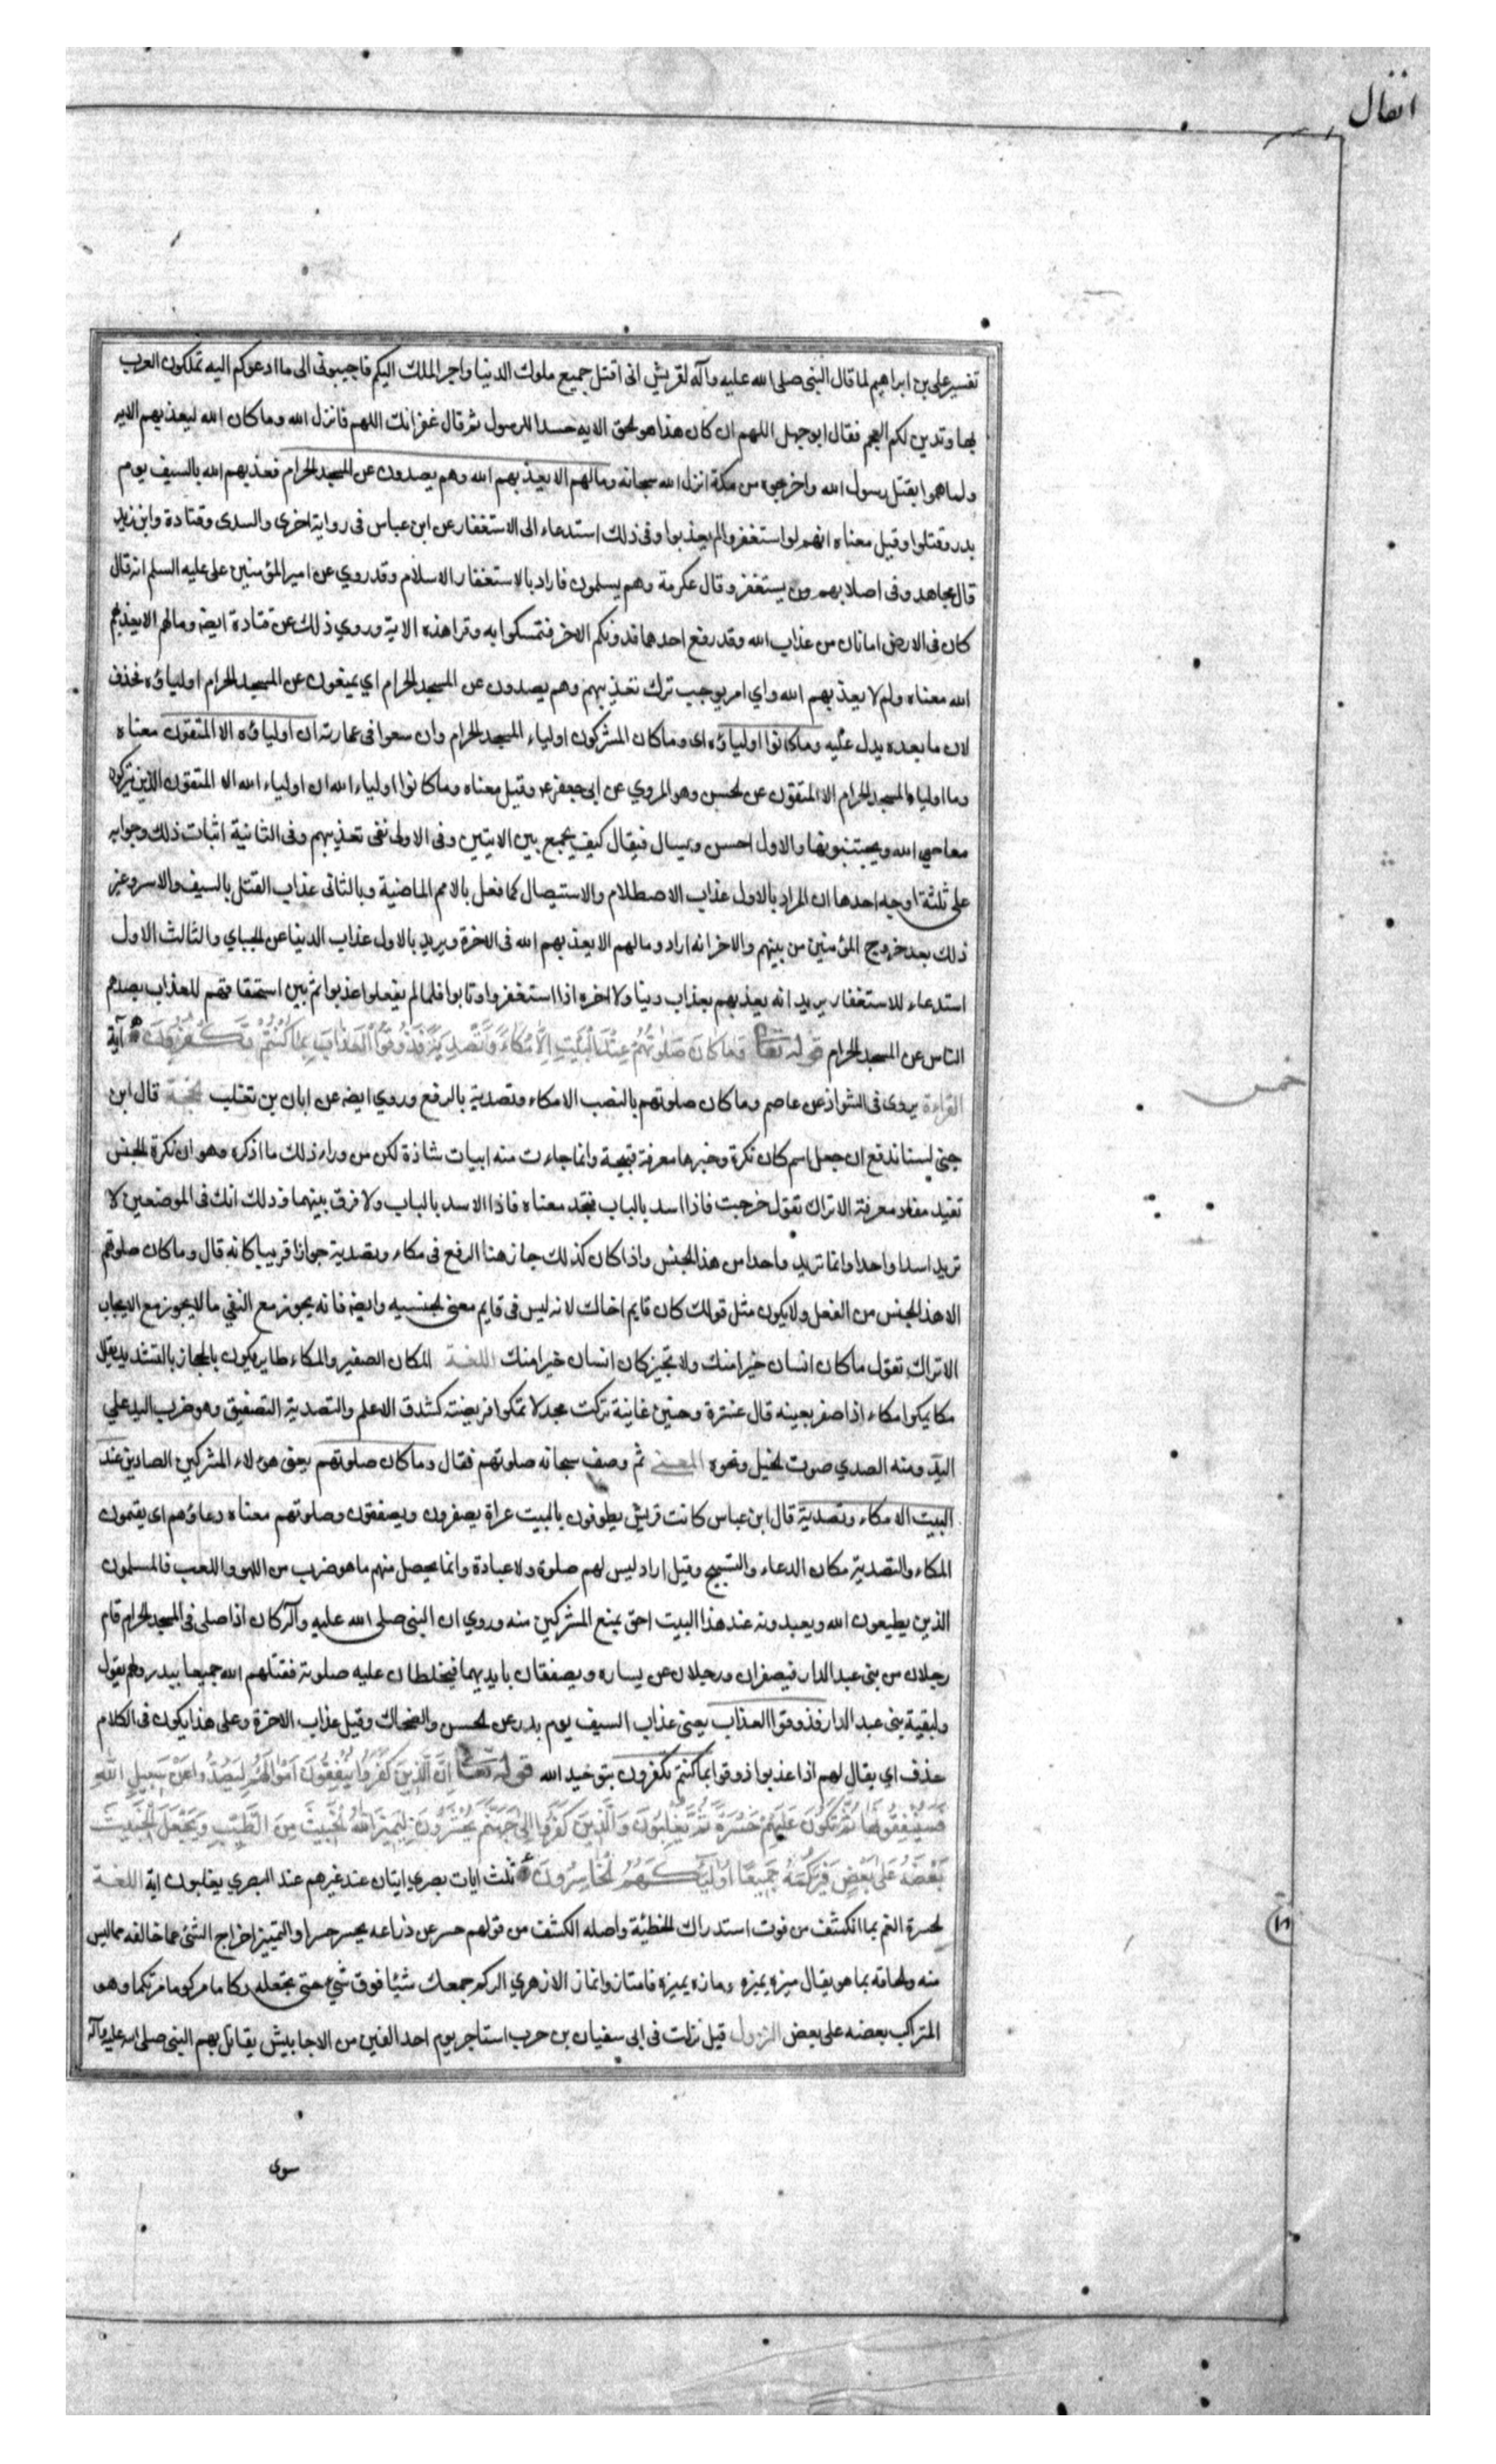 انفال
تفسير على بن ابراهيم لما قال النبى صلى الله عليه وآله لقريش انى اقتل جميع ملوك الدنيا واجر الملك اليكم فاجيبونى الى ما ادعوكم اليه تملكون العرب
بها وتدين لكم العجم فقال ابو جهل اللهم ان كان هذا هو الحق الايه حسدا للرسول ثم قال غفرانك اللهم فانزل الله وما كان الله ليعذبهم الايه
ولما هموا بقتل رسول الله واخرجوه من مكة انزل الله سبحانه ومالهم الا يعذبهم الله وهم يصدون عن المسجد الحرام فعذبهم الله بالسيف يوم
بدر وقتلوا وقيل معناه انهم لو استغفروا لم يعذبوا وفى ذلك استدعاء الى الاستغفار عن ابن عباس فى رواية اخرى والسدى وقتادة وابن زيد
قال مجاهد وفى اصلابهم من يستغفر وقال عكرمة وهم يسلمون فاراد بالاستغفار الاسلام وقد روي عن امير المؤمنين على عليه السلم انه قال
كان فى الارض امانان من عذاب الله وقد رفع احدهما فدونكم الاخر فتمسكوا به وقرا هذه الاية وروي ذلك عن قتادة ايضه ومالهم الا يعذبهم
الله معناه ولم لا يعذبهم الله واي امر يوجب ترك تعذيبهم وهم يصدون عن المسجد الحرام اي يمنعون عن المسجد الحرام اولياؤه فحذف
لان ما بعده يدل عليه وما كانوا اولياؤه اى وما كان المشركون اولياء المسجد الحرام وان سعوا فى عمارته ان اولياؤه الا المتقون معناه
وما اولياء المسجد الحرام الا المتقون عن الحسن وهو المروي عن ابى جعفر ع وقيل معناه وما كانوا اولياء الله ان اولياء الله الا المتقون الذين يتركون
معاصي الله ويجتنبونها والاول احسن ويسال فيقال كيف يجمع بين الايتين وفى الاولى نفى تعذيبهم وفى الثانية اثبات ذلك وجوابه
على ثلثة اوجه احدها ان المراد بالاول عذاب الاصطلام والاستيصال كما فعل بالامم الماضية وبالثانى عذاب القتل بالسيف والاسر وغير
ذلك بعد خروج المؤمنين من بينهم والاخر انه اراد ومالهم الا يعذبهم الله فى الاخرة ويريد بالاول عذاب الدنيا عن الجباي والثالث الاول
استدعاء للاستغفار يريد انه يعذبهم بعذاب دنيا ولا اخره اذا استغفروا وتابوا فلما لم يفعلوا عذبوا ثم بين استحقاقهم للعذاب بصدهم
الناس عن المسجد الحرام قوله تعا وَمَا كَانَ صَلٰوتُهُمْ عِنْدَ الْبَيْتِ اِلَّا مُكَاءً وَتَصْدِيَةً فَذُوقُوا الْعَذَابَ بِمَا كُنْتُمْ تَكْفُرُونَ آية
القراءة يروى فى الشواذ عن عاصم وما كان صلوتهم بالنصب الا مكاء وتصدية بالرفع وروي ايضه عن ابان بن تغلب الحجة قال ابن
جنى لسنا ندفع ان جعل اسم كان نكرة وخبرها معرفة قبيحة وانما جاءت منه ابيات شاذة لكن من وراء ذلك ما اذكره وهو ان نكرة الجنس
تفيد مفاد معرفة الا تراك تقول خرجت فاذا اسد بالباب فتجد معناه فاذا الاسد بالباب ولا فرق بينهما وذلك انك فى الموضعين لا
تريد اسدا واحدا وانما تريد واحدا من هذا الجنس واذا كان كذلك جاز هنا الرفع فى مكاء وتصدية جوازا قريبا كانه قال وما كان صلوتهم
الا هذا الجنس من الفعل ولا يكون مثل قولك كان قايم اخاك لانه ليس فى قايم معنى الجنسيه وايضه فانه يجوز مع النفي ما لا يجوز مع الايجاب
الا تراك تقول ما كان انسان خيرا منك ولا تجيز كان انسان خيرا منك اللغة المكان الصفير والمكاء طاير يكون بالحجاز بالتشديد يقال
مكا يمكوا مكاء اذا صفر بعينه قال عنترة وحنين غانية تركت مجدلا تمكوا فريضته كشدق الاعلم والتصدية التصفيق وهو ضرب اليد على
اليد ومنه الصدي صوت الخيل ونحوه المعنى ثم وصف سبحانه صلوتهم فقال وما كان صلوتهم يعنى هولاء المشركين الصادين عند
البيت الا مكاء وتصدية قال ابن عباس كانت قريش يطوفون بالبيت عراة يصفرون ويصفقون وصلوتهم معناه دعاؤهم اى يقيمون
المكاء والتصدية مكان الدعاء والتسبيح وقيل اراد ليس لهم صلوة ولا عبادة وانما يحصل منهم ما هو ضرب من اللهو واللعب فالمسلمون
الذين يطيعون الله ويعبدونه عند هذا البيت احق بمنع المشركين منه وروي ان النبى صلى الله عليه وآله كان اذا صلى فى المسجد الحرام قام
رجلان من بنى عبد الدار فيصفران ورجلان عن يساره ويصفقان بايديهما فيخلطان عليه صلوته فقتلهم الله جميعا ببدر ولهم يقول
ولبقية بنى عبد الدار فذوقوا العذاب يعنى عذاب السيف يوم بدر عن الحسن والضحاك وقيل عذاب الاخرة وعلى هذا يكون فى الكلام
حذف اي يقال لهم اذا عذبوا ذوقوا بما كنتم تكفرون بتوحيد الله قوله تعا اِنَّ الَّذِينَ كَفَرُوا يُنْفِقُونَ اَمْوَالَهُمْ لِيَصُدُّوا عَنْ سَبِيلِ اللهِ
فَسَيُنْفِقُونَهَا ثُمَّ تَكُونُ عَلَيْهِمْ حَسْرَةً ثُمَّ يُغْلَبُونَ وَالَّذِينَ كَفَرُوا اِلَى جَهَنَّمَ يُحْشَرُونَ لِيَمِيزَ اللهُ الْخَبِيثَ مِنَ الطَّيِّبِ وَيَجْعَلَ الْخَبِيثَ
بَعْضَهُ عَلَى بَعْضٍ فَيَرْكُمَهُ جَمِيعًا اُولٰئِكَ هُمُ الْخَاسِرُونَ ثلث ايات بصري ايتان عند غيرهم عند البصري يغلبون اية اللغة
الحسرة الغم بما انكشف من فوت استدراك الخطيئة واصله الكشف من قولهم حسر عن ذراعه يحسر حسرا والتمييز اخراج الشئ عما خالفه مما ليس
منه والحاقه بما هو يقال ميزه يميزه ومازه يميزه فامتاز وانماز الازهري الركم جمعك شيئا فوق شئ حتى تجعله ركاما مركوما مرتكما وهو
المتراكب بعضه على بعض النزول قيل نزلت فى ابى سفيان بن حرب استاجر يوم احد الفين من الاحابيش يقاتل بهم النبى صلى الله عليه وآله
خمس
سوى